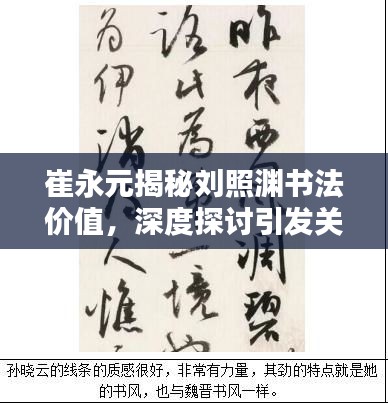 昨夜西凋碧
路此为一境也
为伊消人憔
崔永元揭秘刘照渊书法
价值，深度探讨引发关
孙晓云的线条的质感很好，非常有力量，其劲的特点就是她
的书风，也与魏晋书风一样。